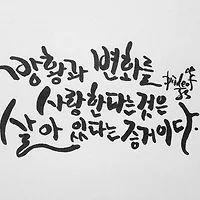 방황과 변화를
사랑한다는것은
살아 있다는 증거이다.